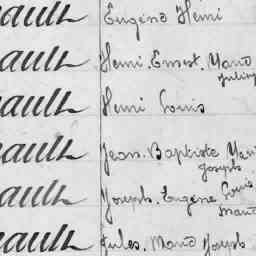 ault Eugène Henri
ault Henri Ernest Marie
Julien
ault Henri Louis
ault Jean Baptiste Marie
Joseph
ault Joseph Eugène Louis
Marie
ault Jules Marie Joseph